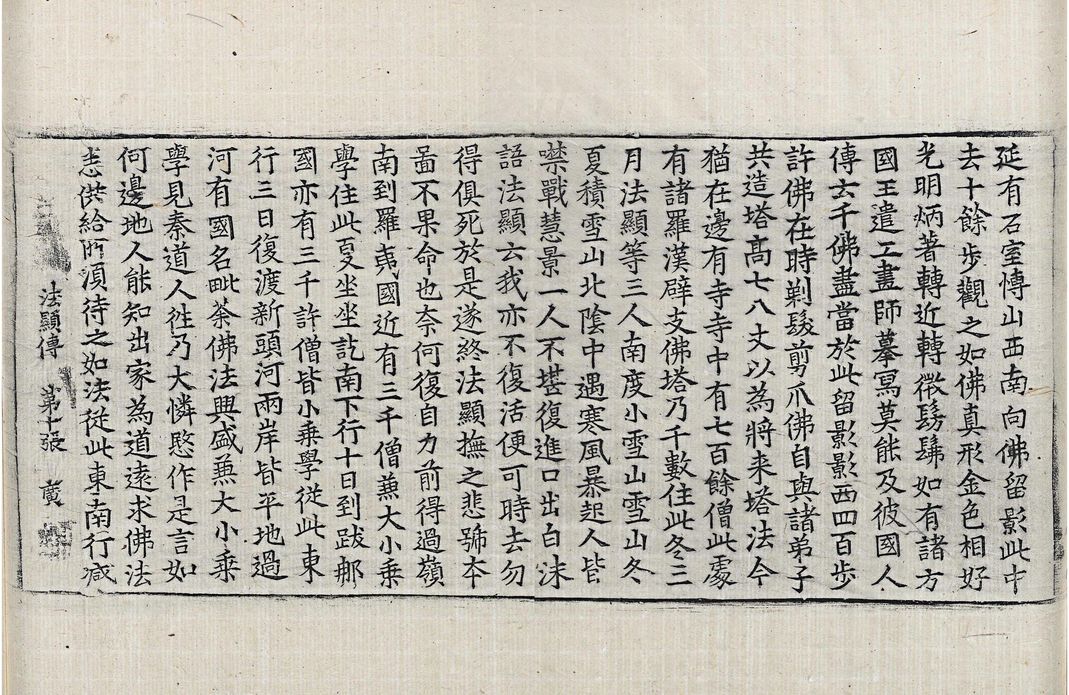 延有石室慱山西南向佛留影此中
去十餘步觀之如佛真形金色相好
光明炳著轉近轉微髣髴如有諸方
國王遣工畫師摹寫莫能及彼國人
傳云千佛盡當於此留影影西四百步
許佛在時剃髮剪爪佛自與諸弟子
共造塔高七八丈以為將来塔法今
猶在邊有寺寺中有七百餘僧此處
有諸羅漢辟支佛塔乃千數住此冬三
月法顯等三人南度小雪山雪山冬
夏積雪山北陰中遇寒風暴起人皆
噤戰慧景一人不堪復進口出白沫
語法顯云我亦不復活便可時去勿
得俱死於是遂終法顯撫之悲號夲
啚不果命也奈何復自力前得過嶺
南到羅夷國近有三千僧兼大小乗
學住此夏坐坐訖南下行十日到跋那
國亦有三千許僧皆小乗學從此東
行三日復渡新頭河兩岸皆平地過
河有國名毗荼佛法興盛兼大小乗
學見秦道人往乃大憐愍作是言如
何邊地人能知出家為道遠求佛法
悉供給所須待之如法從此東南行减
法顯傳 第十張 黄